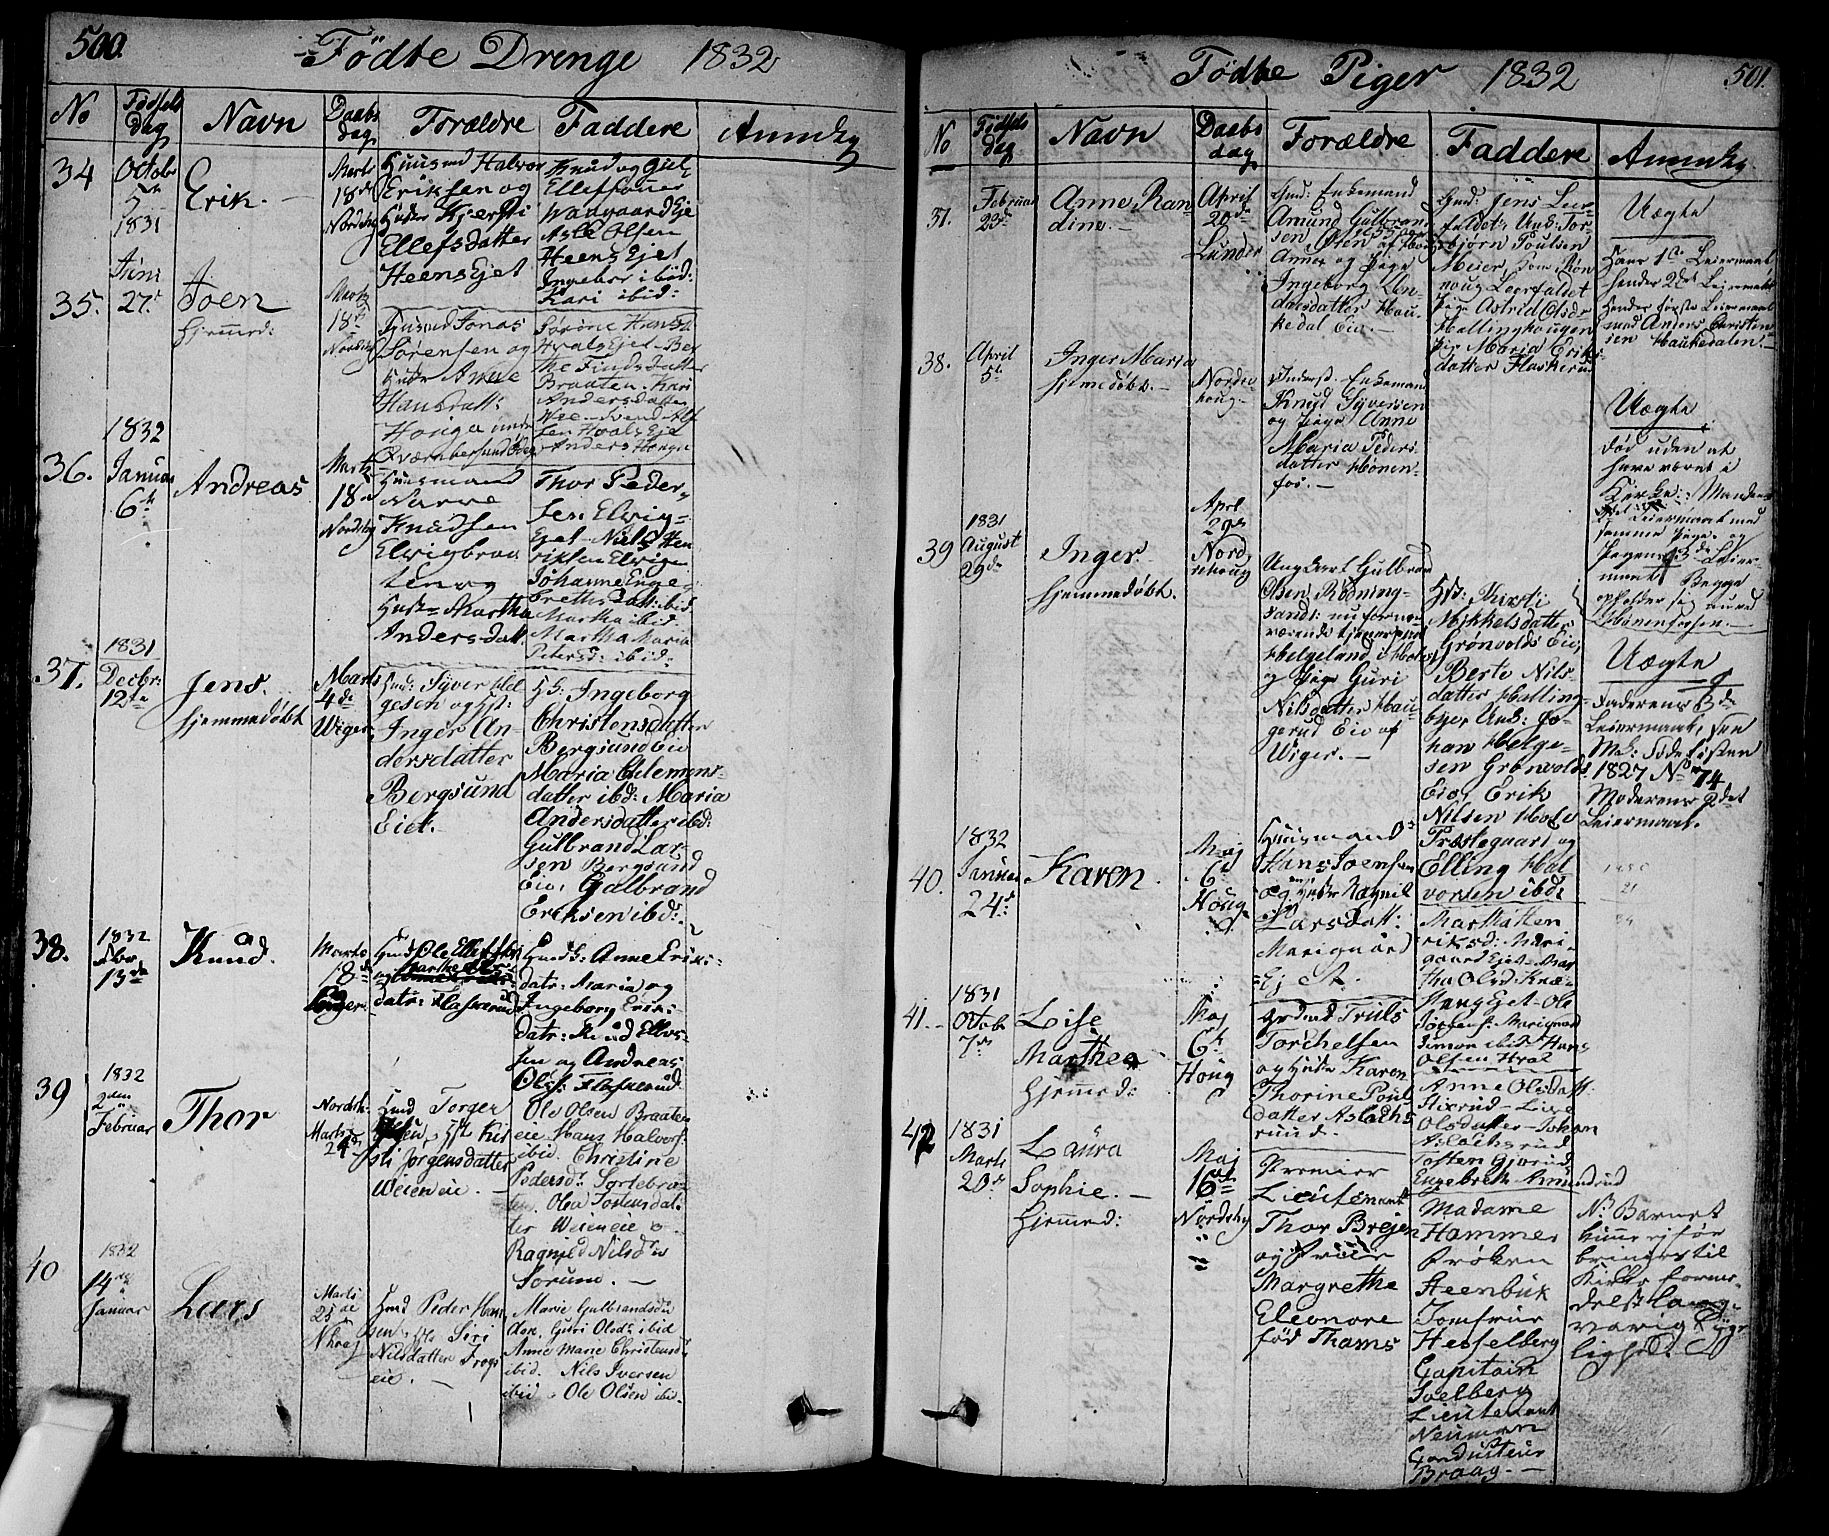 500.
Fødte Drenge 1832
No
Fødsels
dag
Navn
Daabs
dag
Forældre
Faddere
Anmkg
34
Octobr
5te
1831
Erik.
Marts
18de
Nordehg
Huusmd Halvor
Eriksen og
Hustr Kjersti
Ellefsdatter
Heens Ejet
Knud og
Waagaard Eje
Asle Olsen
Heens Ejet
Ingebor ibid:
Kari ibid:
35.
Juni
27de
Joen
hjemmed:
Marts
18de
Nordehg
Huusmd Jonas
Sørensen og
Hustr Anne
Hansdatt:
Sørine Hansd
Hvals Ejet - Ber
the Findsdatter
Braaten. Kari
Andersdatter
Wee -
sen Hvals Eje
Anders
36.
1832
Januar
6te
Andreas
Marts
18de
Nordehg
Huusmand
Narve
Knudsen
Elvigbraa
ten og
Hustr Martha
Andersdatt.
Thor Peder
sen Elvig
Ejet - Niels Hen
riksen Elvigen
Johanne Enge
brethsdatt: ibid
Martha ibid.
Martha Maria
Petersd: ibid.
37.
1831
Decbr:
12te
Jens.
hjemmedøbt
Marts
4de
Wiger
Huusm: Syver Hel
gesen og Hst:
Inger An-
dersdatter
Bergsund
Eiet.
Hst: Ingeborg
Christensdatter
Bergsund Eie
Maria Clemens-
datter ibd: Maria
Andersdatter ibd:
Gulbrand Lar-
sen Bergsund
Eie, Gulbrand
Eriksen ibd:
38.
1832
Febr
13de
Knud.
Marts
18de
Huusmd Ole Ellefsen
og
datr: Flaskerud
Huusmd: Anne Eriks:
datr: Maria og
Ingeborg Eriks:
datr: Knud Ellev-
sen og Andreas
Ols: Flaskerud
39
1832
2den
Februar
Thor
Nordeh.
Marts
24de
Huusmd Torger
Olsen, Hst Kir
sti Jørgensdatter
Weieneie. -
Ole Olsen Braaten
eie Hans Halvors
ibid. Christine
Pedersdr Sortebra
ten. Olea Torstensdat
ter Weieneie o
Ragnild Nilsdr
Sørum. -
40
1832
14de
Januar
Lars
Marts
25de
Nhoug
Huusmd Peder Han
sen, Hst Siri
Nilsdatter Frogs
eie. -
Marie Gulbrandsda
Guri Olsdr ibid
Anne Marie Christensd
ibid. Nils Iversen
ibid. Ole Olsen ibi.
Fødte Piger 1832
501.
No
Fødsels
dag
Navn
Daabs
dag
Forældre
Faddere
Anmkg.
37.
Februar
23de
Anne Ran
dine. -
April
20de
Lunder
Gmd: Enkemand
Amund Gulbran
sen Øsen af
Aamer og Pige
Ingeborg An-
dersdatter Hau-
kedal Eie. -
Gmd: Jens Leer-
faldet; Unk: Tor-
bjørn Poulsen
Meier, Kone Røn
noug Leerfaldet
Pige Astrid Olsdr
Hallinghaugen
Pige Maria Eriks
datter Flaskerud
Uægte
Hans 1ste Leiermaal
hendes 2det Leiermaal
hendes første Leiermaal
med Anders Christen
sen Haukedalen. -
38.
April
5te
Inger Maria
hjemedøbt. -
Nordre
houg. -
Inderst. Enkemand
Knud Syversen
og Pige Anne
Maria Peders
datter Hønen-
fos. -
Uægte
død uden at
have været i
Kirke: Mandens
Leiermaal med
samme Pige og
Pigens 3de Leier-
maal. Begge
opholder sig nu ved
Hønenfossen. -
39
1831
August
29de
Inger.
hjemmedøbt.
Aprl
29de
Nord
rehoug
Ungkarl Gulbrand
Olsen Rødning-
sand: nuforne-
værende tjenestekarl
Helgeland i Hole
og Pige Guri
Nilsdatter Hau-
gerud Eie af
Wiger. -
Hst: Kirsti
Mikkelsdatter
Grønvolds Eie,
Berte Nils-
datter Halling-
bye, Unk: Jo-
han Helge-
sen Grønvolds
Eie, Erik
Nilsen Hole
Præstegaard og
Elling Hal-
vorsen ibd:
Uægte
Faderens 3de
Leiermaal, see
Ms: Døde Listen
1827 No 74
Moderens 2det
Leiermaal.
40.
1832
Januar
24de
Karen
Maj
6te
Houg
Huusmand
Hans Joensen
og Hustr Ragnil
Larsdatt:
Mariegaard
Ej
Martha Hen
riksd: Mari-
gaard Ejet - Mar
tha Olsd Kræ-
Haug Ejet - Ole
Marigaard
Simon ibid - Hans
Olsen Hval
41.
1831
Octobr
7de
Lise
Marthea
Hjemmed:
Maj
6te
Houg
Grdmd Truls
Torchelsen
og Hustr Karen
Thorine Poul
datter Aslachs
ruud.
Anne Olsdatt.
Stixrud - Lise
Olsdatter - Johan
Aslachsrud
Tosten Gjørud
Engebreth Amundrud
42
1831
Marts
20de
Laura
Sophie. -
Hjemmed:
Maj
16de
Nordehg
Premier
Lieutenant
Thor Brejen
og Fruen
Margrethe
Eleonore
fød Thams
Madame
Hammer
Frøken
Steenbuk
Jomfrue
Hesselberg
Capitain
Soelberg
Lieutenant
Neumann
Conducteur
Braag. -
No Barnet
kunne ej før
bringes til
Kirke forme-
delst lang-
varig Syge
lighed.